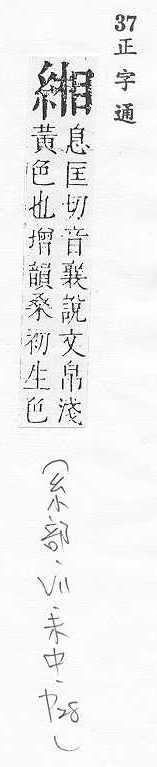 37正字通
緗
息匡切音襄說文帛淺
黃色也增韻桑初生色
(糸部·VII·未中·P28)